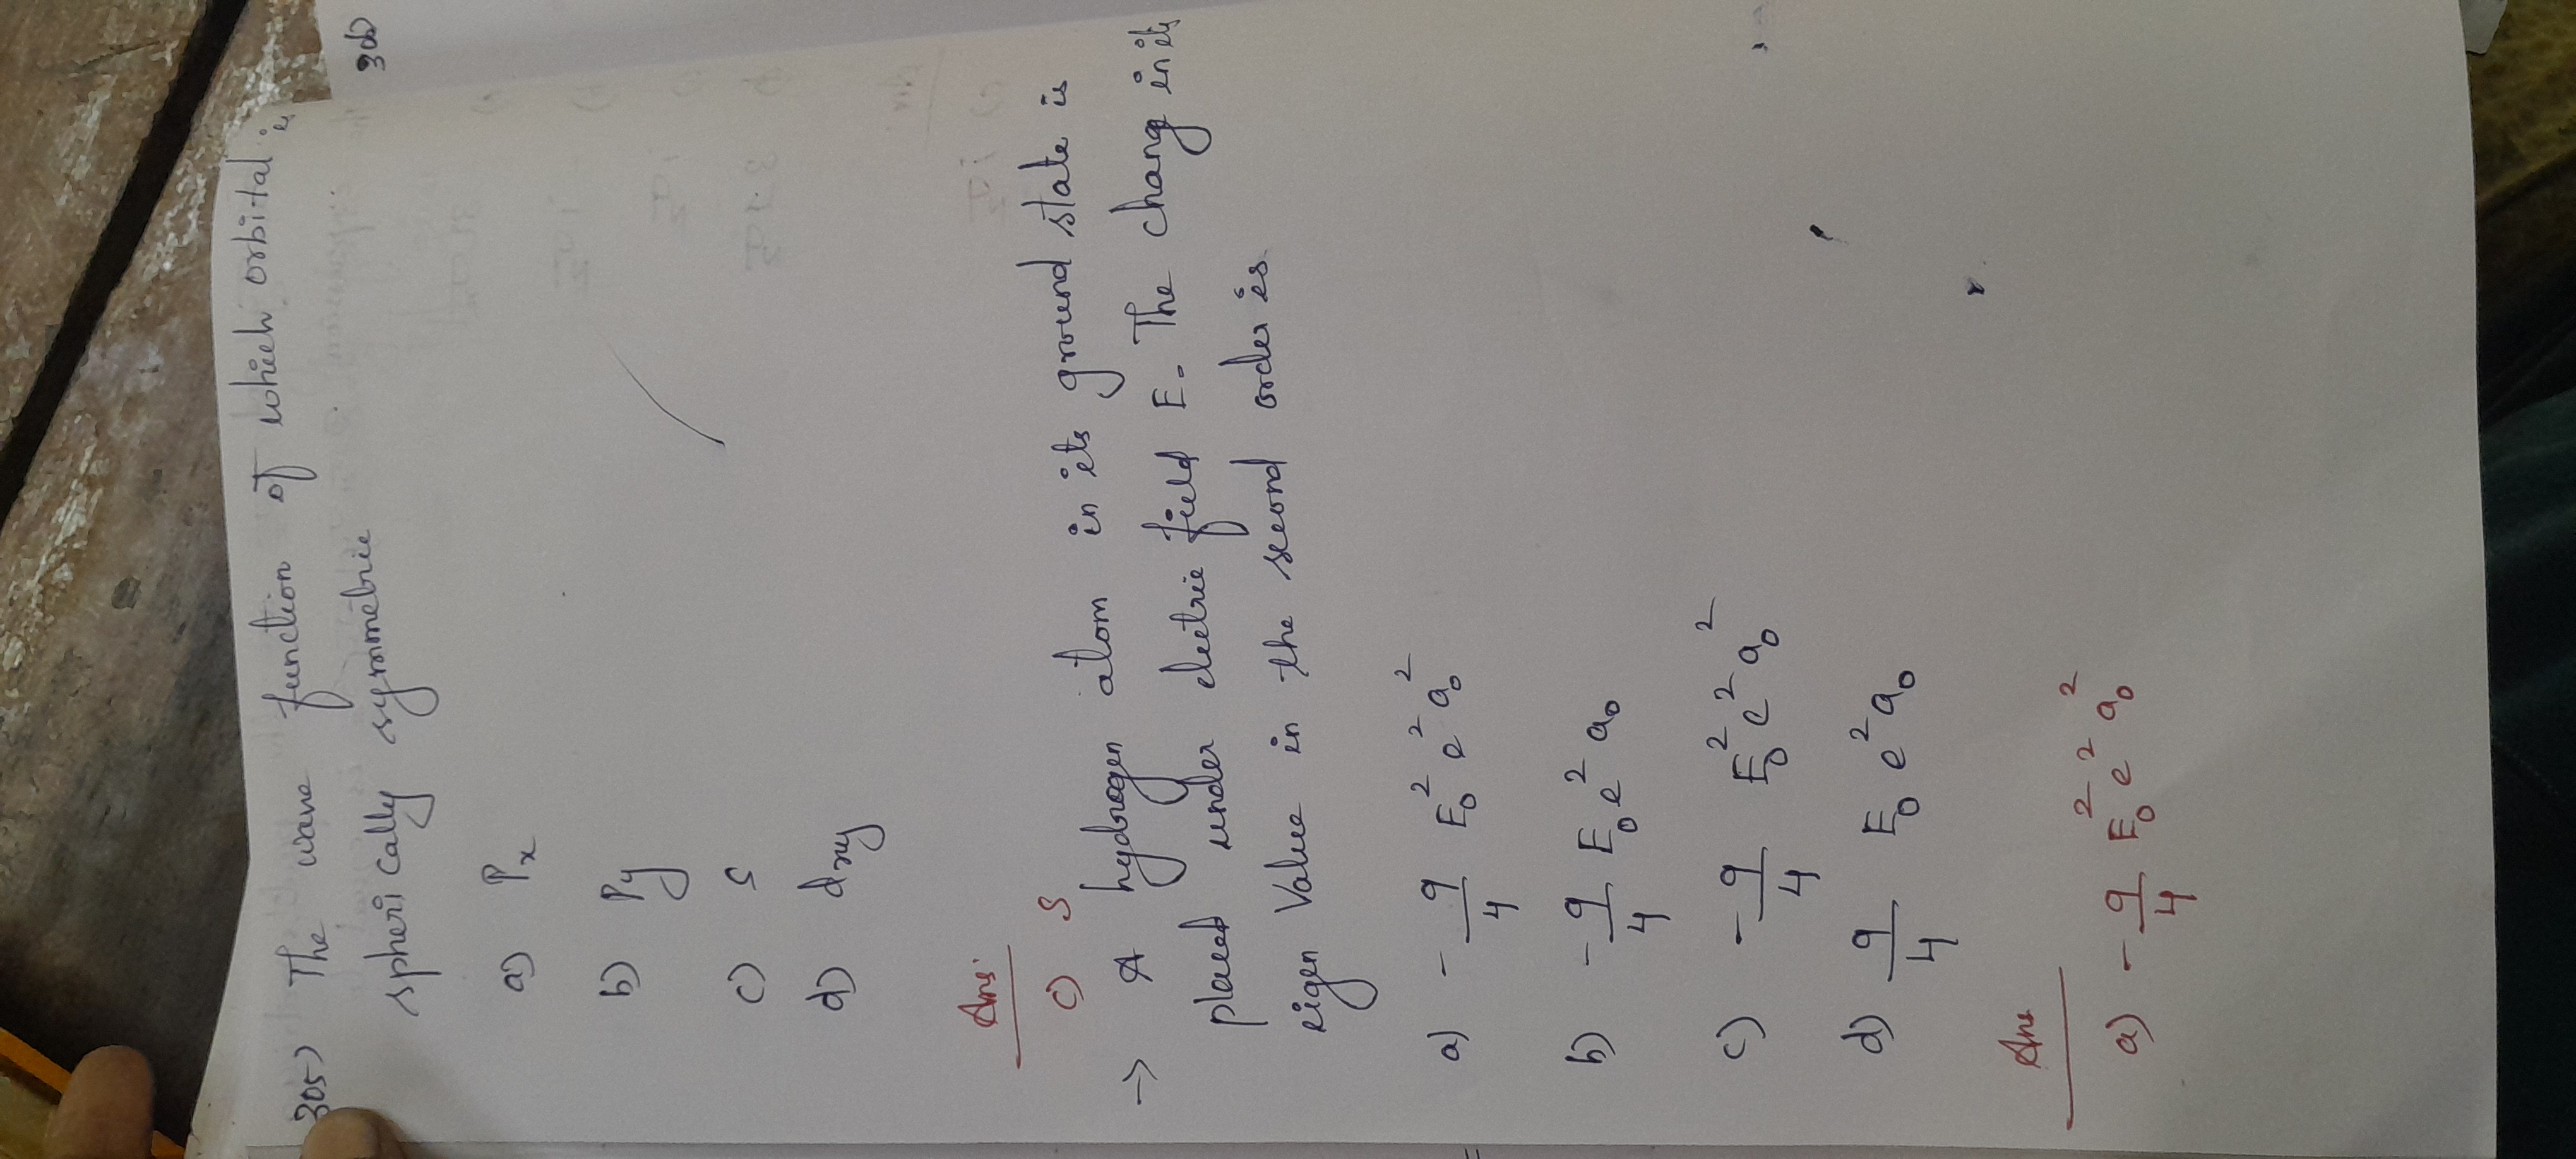 305) The wave function of which orbital is
spherically symmetric
a) Px
b) Py
c) S
d) dxy
Ans:
c) S
-> A hydrogen atom in its ground state is
placed under electric field E. The change in its
eigen Value in the second order is
a) - 9/4 E₀² e² a₀²
b) - 9/4 E₀ e² a₀
c) - 9/4 E₀² e² a₀²
d) 9/4 E₀ e² a₀
Ans
a) - 9/4 E₀² e² a₀²
306